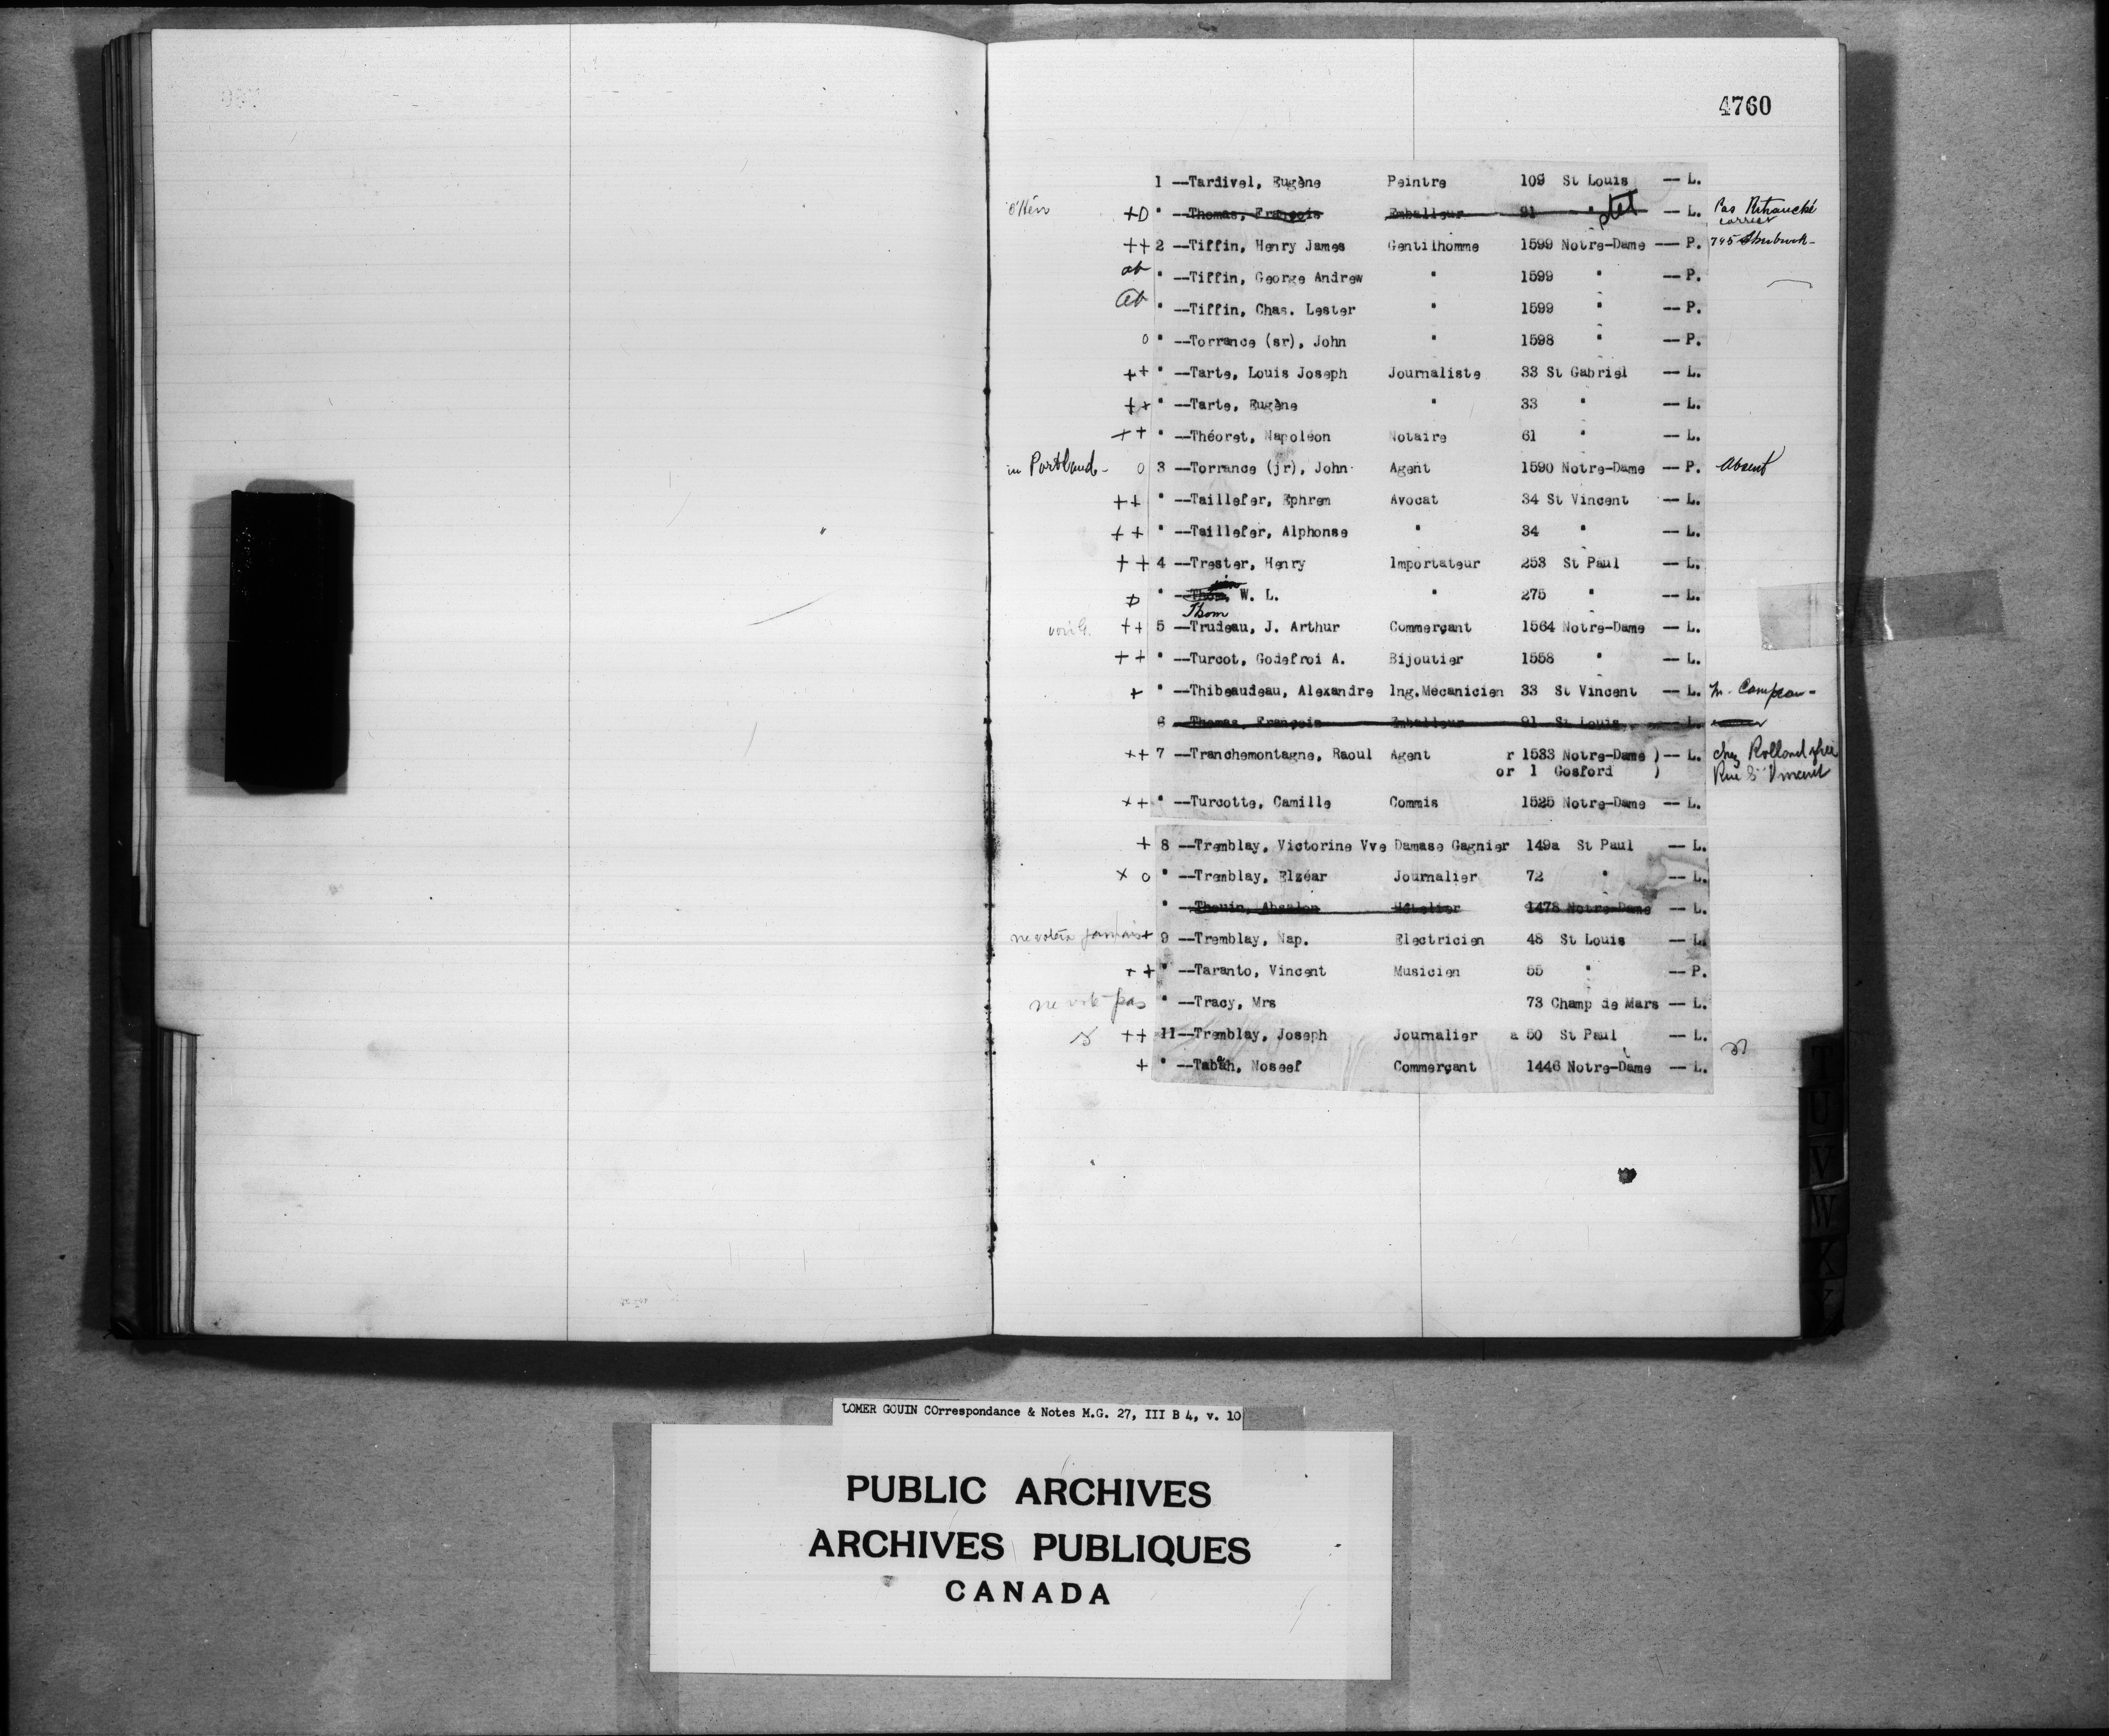 4760
1 —Tardivel, Eugène Peintre 109 St Louis — L.
+D " —Thomas, François Emballeur 91 " stet — L. Pas Retranché
++ 2 —Tiffin, Henry James Gentilhomme 1599 Notre-Dame — P. 795
ab " —Tiffin, George Andrew " 1599 " — P.
ab " —Tiffin, Chas. Lester " 1599 " — P.
o " —Torrance (sr), John " 1598 " — P.
++ " —Tarte, Louis Joseph Journaliste 33 St Gabriel — L.
++ " —Tarte, Eugène " 33 " — L.
++ " —Théoret, Napoléon Notaire 61 " — L.
in Portland - o 3 —Torrance (jr), John Agent 1590 Notre-Dame — P. Absent
++ " —Taillefer, Ephrem Avocat 34 St Vincent — L.
++ " —Taillefer, Alphonse " 34 " — L.
++ 4 —Trester, Henry Importateur 253 St Paul — L.
D " —Thom, W. L. " 275 " — L.
Thom
++ 5 —Trudeau, J. Arthur Commerçant 1564 Notre-Dame — L.
++ " —Turcot, Godefroi A. Bijoutier 1558 " — L.
+ " —Thibeaudeau, Alexandre Ing.Mecanicien 33 St Vincent — L.
6 —Thomas, François Emballeur 91 St Louis — L.
++ 7 —Tranchemontagne, Raoul Agent r 1533 Notre-Dame ) — L. chez Rolland
or 1 Gosford ) Rue St Vincent
++ " —Turcotte, Camille Commis 1525 Notre-Dame — L.
+ 8 —Tremblay, Victorine Vve Damase Gagnier 149a St Paul — L.
x o " —Tremblay, Elzéar Journalier 72 " — L.
" —Thouin, Absalon Hôtelier 1478 Notre-Dame — L.
ne votera jamais + 9 —Tremblay, Nap. Electricien 48 St Louis — L.
++ " —Taranto, Vincent Musicien 55 " — P.
ne vote pas " —Tracy, Mrs 73 Champ de Mars — L.
++ 11—Tremblay, Joseph Journalier a 50 St Paul — L.
+ " —Tabah, Noseef Commerçant 1446 Notre-Dame — L.
T
U
V
W
K
LOMER GOUIN COrrespondance & Notes M.G. 27, III B 4, v. 10
PUBLIC ARCHIVES
ARCHIVES PUBLIQUES
CANADA